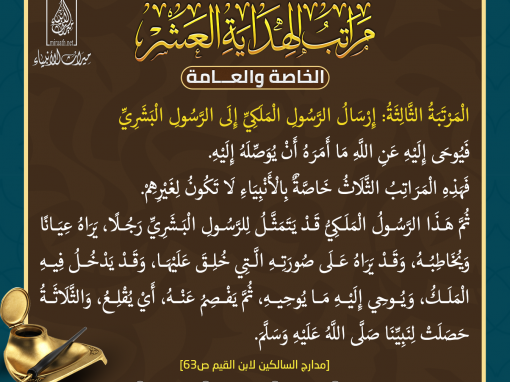 مَرَاتِبُ الهِدَايَةِ العَشْرِ
الخاصة والعـــامة
ميراث الأنبياء
miraath.net
الْمَرْتَبَةُ الثَّالِثَةُ: إِرْسَالُ الرَّسُولِ الْمَلَكِيِّ إِلَى الرَّسُولِ الْبَشَرِيِّ
فَيُوحَى إِلَيْهِ عَنِ اللَّهِ مَا أَمَرَهُ أَنْ يُوَصِّلَهُ إِلَيْهِ.
فَهَذِهِ الْمَرَاتِبُ الثَّلَاثُ خَاصَّةٌ بِالْأَنْبِيَاءِ لَا تَكُونُ لِغَيْرِهِمْ.
ثُمَّ هَـذَا الرَّسُولُ الْمَلَكِيُّ قَدْ يَتَمَثَّـلُ لِلرَّسُولِ الْبَشَرِيِّ رَجُلًا، يَرَاهُ عِيَانًا
وَيُخَاطِبُـهُ، وَقَـدْ يَرَاهُ عَـلَى صُورَتِـهِ الَّـتِي خُلِـقَ عَلَيْهَـا، وَقَـدْ يَدْخُـلُ فِيهِ
الْمَلَـكُ، وَيُـوحِي إِلَيْـهِ مَـا يُوحِيـهِ، ثُمَّ يَفْصِمُ عَنْـهُ، أَيْ يُقْلِـعُ، وَالثَّلَاثَـةُ
حَصَلَتْ لِنَبِيِّنَا صَلَّى اللَّهُ عَلَيْهِ وَسَلَّمَ.
[مدارج السالكين لابن القيم ص63]